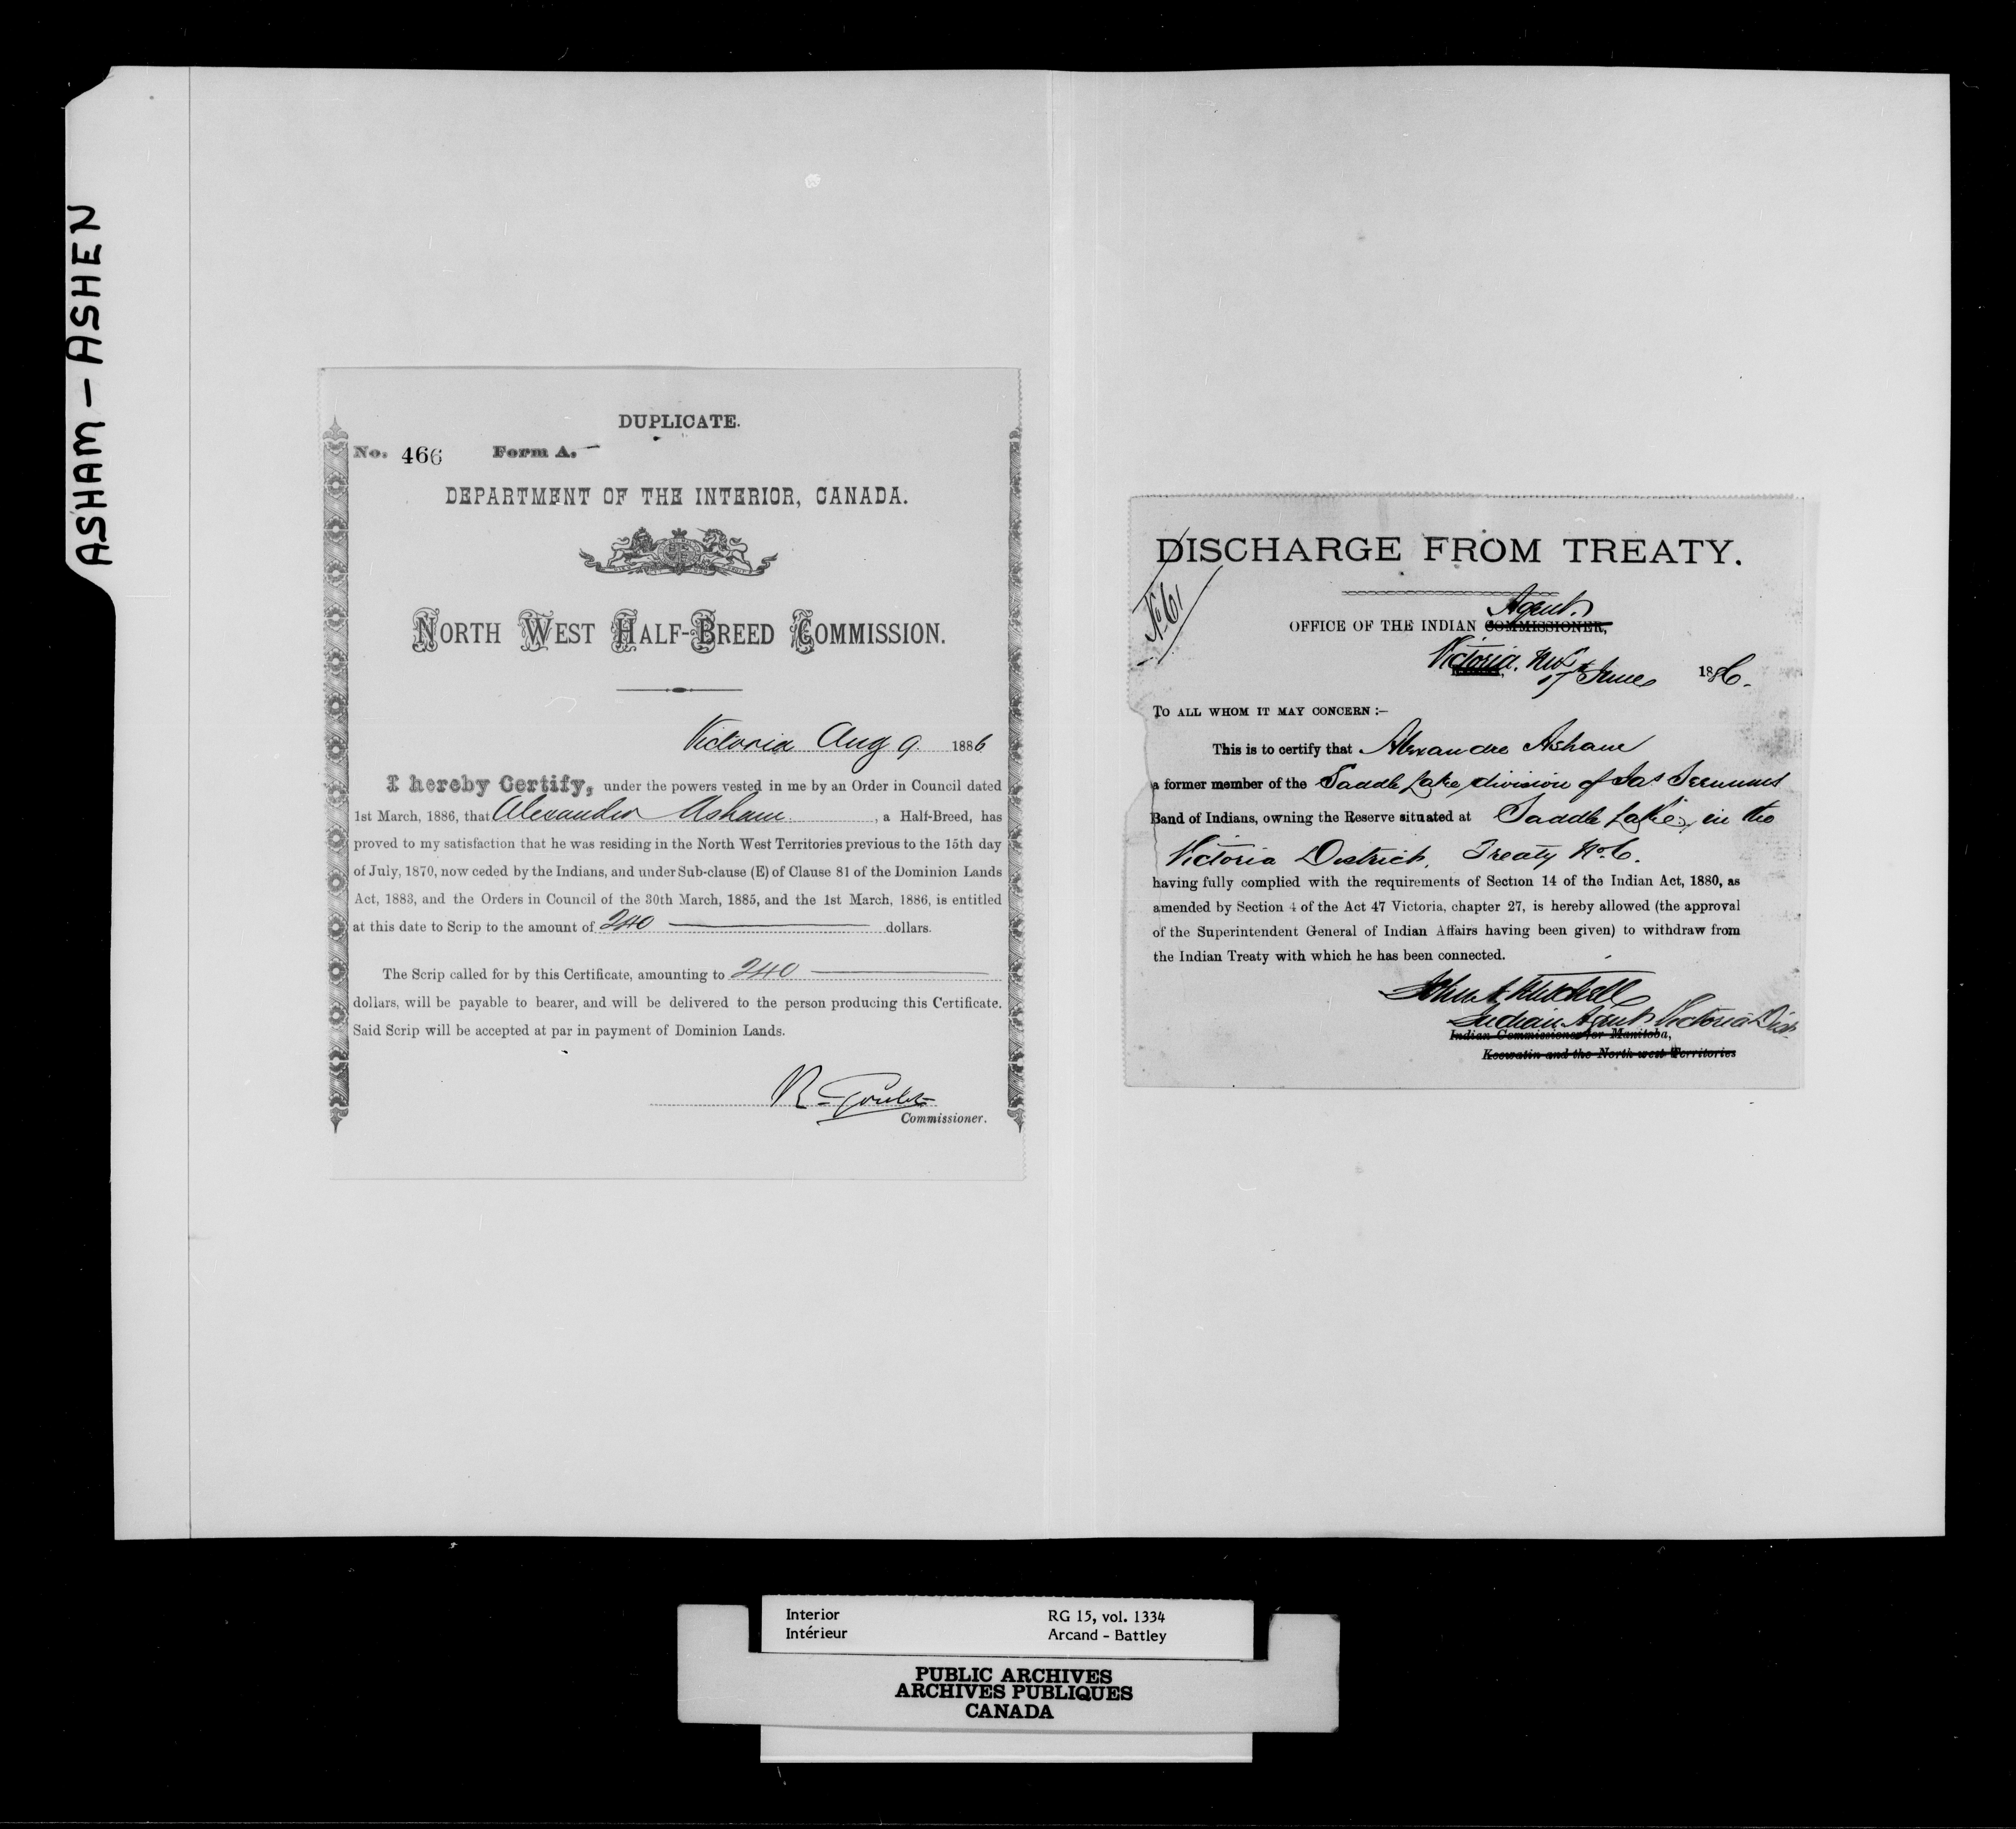 ASHAM - ASHEN
DUPLICATE.
No. 466 Form A. -
DEPARTMENT OF THE INTERIOR, CANADA.
NORTH WEST HALF-BREED COMMISSION.
Victoria Aug 9 1886
I hereby Certify, under the powers vested in me by an Order in Council dated
1st March, 1886, that Alexander Asham , a Half-Breed, has
proved to my satisfaction that he was residing in the North West Territories previous to the 15th day
of July, 1870, now ceded by the Indians, and under Sub-clause (E) of Clause 81 of the Dominion Lands
Act, 1883, and the Orders in Council of the 30th March, 1885, and the 1st March, 1886, is entitled
at this date to Scrip to the amount of 240 dollars.
The Scrip called for by this Certificate, amounting to 240
dollars, will be payable to bearer, and will be delivered to the person producing this Certificate.
Said Scrip will be accepted at par in payment of Dominion Lands.
R Goulet
Commissioner.
DISCHARGE FROM TREATY.
No 61
Agent.
OFFICE OF THE INDIAN COMMISSIONER,
Victoria,
17 June 1886.
TO ALL WHOM IT MAY CONCERN :-
This is to certify that Alexandre Asham
a former member of the Saddle Lake division of Jas Seenum's
Band of Indians, owning the Reserve situated at Saddle Lake, in the
Victoria District, Treaty No. 6.
having fully complied with the requirements of Section 14 of the Indian Act, 1880, as
amended by Section 4 of the Act 47 Victoria, chapter 27, is hereby allowed (the approval
of the Superintendent General of Indian Affairs having been given) to withdraw from
the Indian Treaty with which he has been connected.
John A Mitchell
Indian Agent Victoria Dist.
Indian Commissioner for Manitoba,
Keewatin and the North-west Territories
Interior RG 15, vol. 1334
Intérieur Arcand - Battley
PUBLIC ARCHIVES
ARCHIVES PUBLIQUES
CANADA